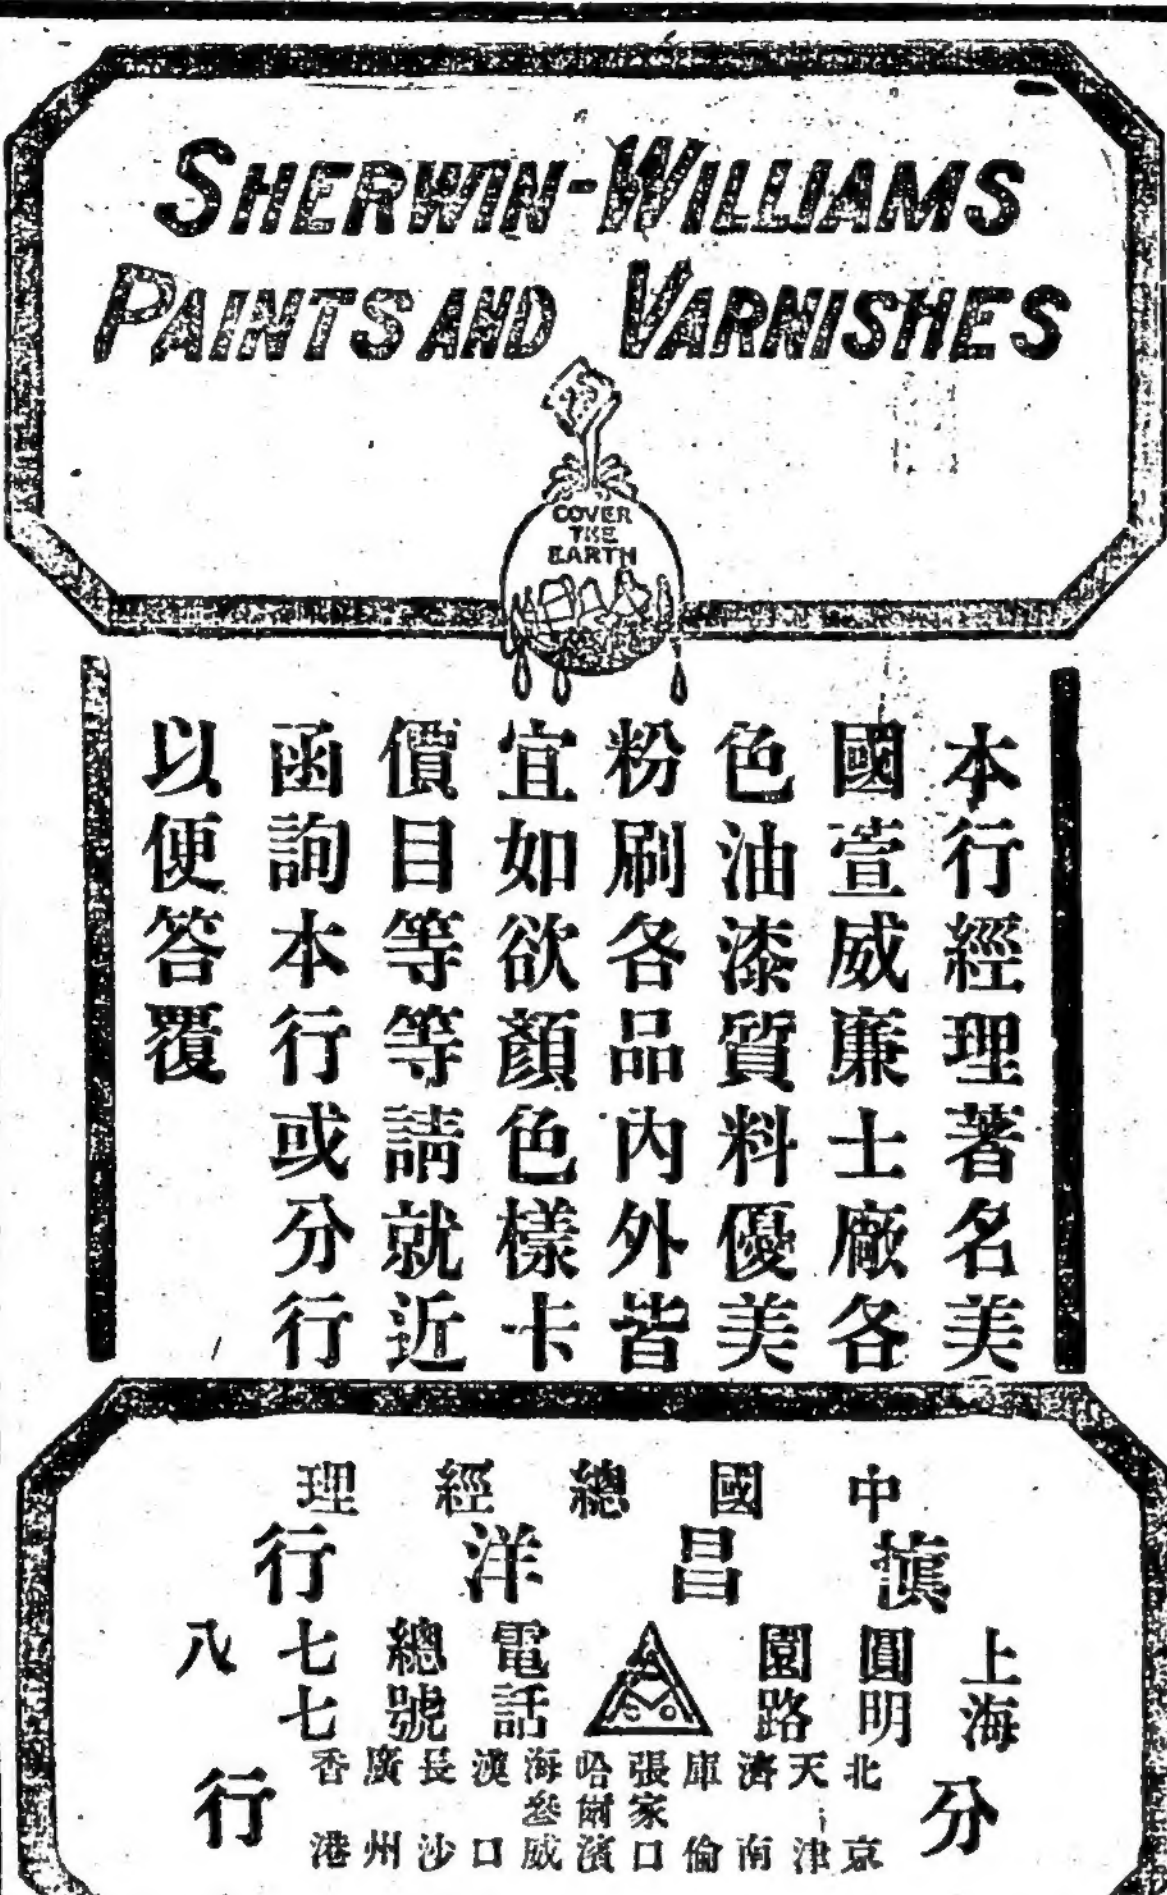 SHERWIN-WILLIAMS
PAINTS AND VARNISHES
COVER
THE
EARTH
本行經理著名美
國萱威廉士廠各
色油漆質料優美
粉刷各品內外皆
宜如欲顏色樣卡
價目等等請就近
函詢本行或分行
以便答覆
中國總經理
慎昌洋行
上海
圓明
園路
電話
總號
七七
八
分行
北京
天津
濟南
庫倫
張家口
哈爾濱
海參威
漢口
長沙
廣州
香港